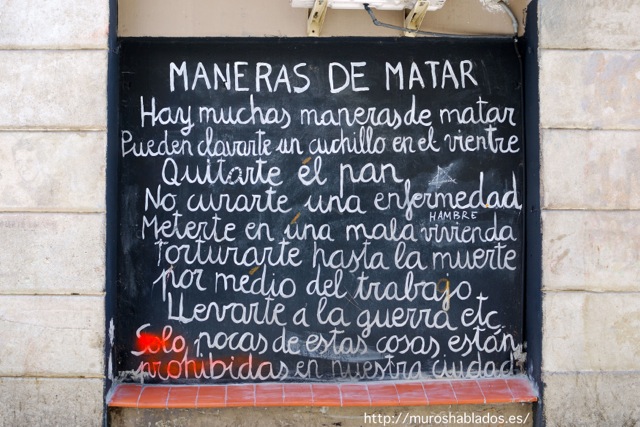 MANERAS DE MATAR
Hay muchas maneras de matar
Pueden clavarte un cuchillo en el vientre
Quitarte el pan
No curarte una enfermedad
HAMBRE
Meterte en una mala vivienda
Torturarte hasta la muerte
por medio del trabajo
Llevarte a la guerra etc
Solo pocas de estas cosas están
prohibidas en nuestra ciudad
http://muroshablados.es/